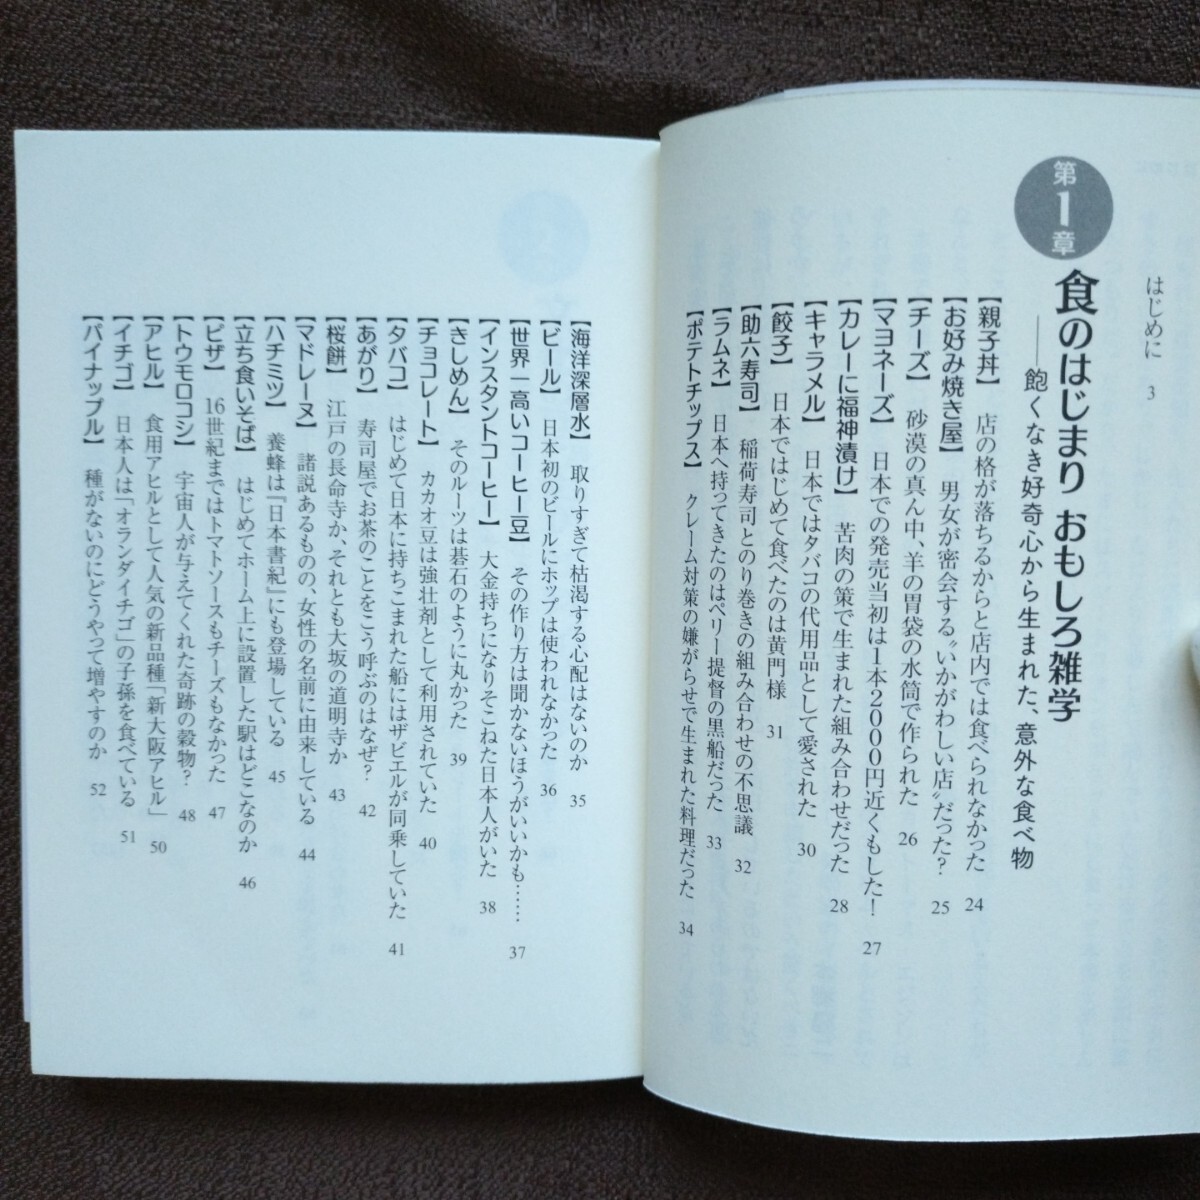 はじめに 3
第1章 食のはじまり おもしろ雑学
――飽くなき好奇心から生まれた、意外な食べ物
【親子丼】 店の格が落ちるからと店内では食べられなかった 24
【お好み焼き屋】 男女が密会する〝いかがわしい店〟だった? 25
【チーズ】 砂漠の真ん中、羊の胃袋の水筒で作られた 26
【マヨネーズ】 日本での発売当初は1本2000円近くもした! 27
【カレーに福神漬け】 苦肉の策で生まれた組み合わせだった 28
【キャラメル】 日本ではタバコの代用品として愛された 30
【餃子】 日本ではじめて食べたのは黄門様 31
【助六寿司】 稲荷寿司とのり巻きの組み合わせの不思議 32
【ラムネ】 日本へ持ってきたのはペリー提督の黒船だった 33
【ポテトチップス】 クレーム対策の嫌がらせで生まれた料理だった 34
【海洋深層水】 取りすぎて枯渇する心配はないのか 35
【ビール】 日本初のビールにホップは使われなかった 36
【世界一高いコーヒー豆】 その作り方は聞かないほうがいいかも…… 37
【インスタントコーヒー】 大金持ちになりそこねた日本人がいた 38
【きしめん】 そのルーツは碁石のように丸かった 39
【チョコレート】 カカオ豆は強壮剤として利用されていた 40
【タバコ】 はじめて日本に持ちこまれた船にはザビエルが同乗していた 41
【あがり】 寿司屋でお茶のことをこう呼ぶのはなぜ? 42
【桜餅】 江戸の長命寺か、それとも大坂の道明寺か 43
【マドレーヌ】 諸説あるものの、女性の名前に由来している 44
【ハチミツ】 養蜂は『日本書紀』にも登場している 45
【立ち食いそば】 はじめてホーム上に設置した駅はどこなのか 46
【ピザ】 16世紀まではトマトソースもチーズもなかった 47
【トウモロコシ】 宇宙人が与えてくれた奇跡の穀物? 48
【アヒル】 食用アヒルとして人気の新品種「新大阪アヒル」 50
【イチゴ】 日本人は「オランダイチゴ」の子孫を食べている 51
【パイナップル】 種がないのにどうやって増やすのか 52